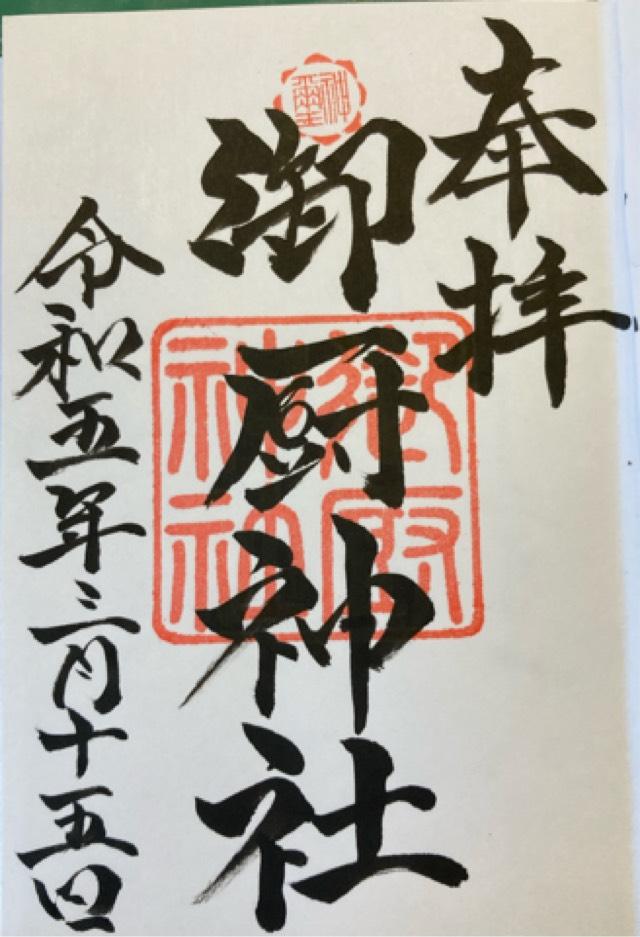 奉拝
御厨神社
令和五年三月十五日
御厨
神社